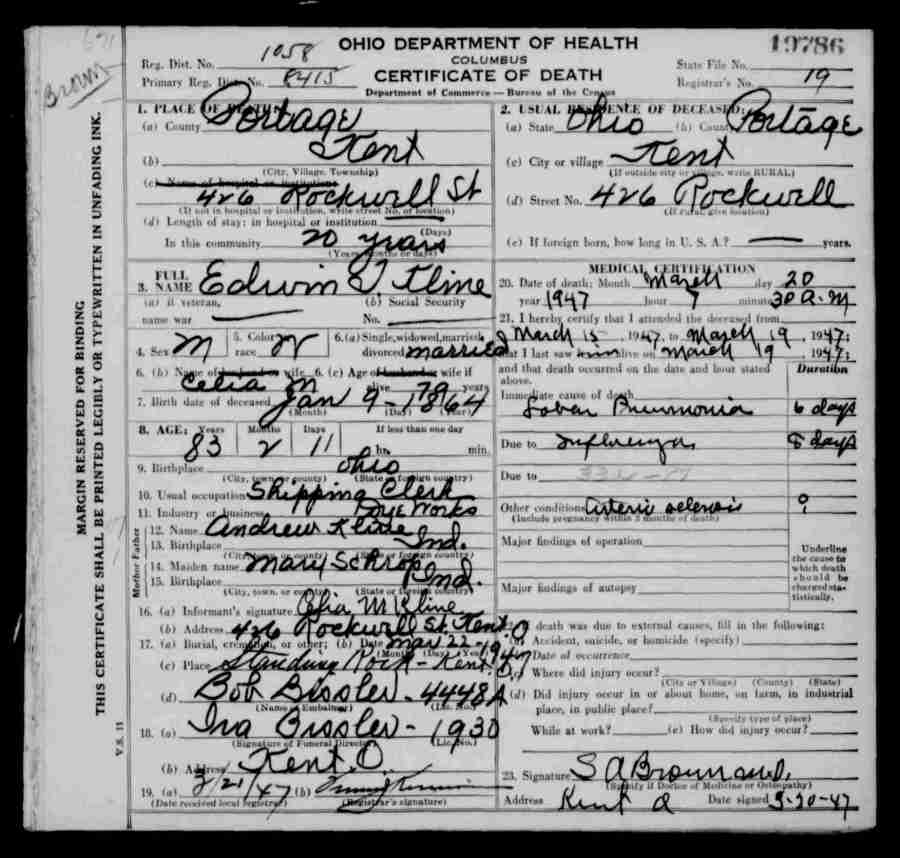 691
Brown
MARGIN RESERVED FOR BINDING
THIS CERTIFICATE SHALL BE PRINTED LEGIBLY OR TYPEWRITTEN IN UNFADING INK.
V.S. 11
OHIO DEPARTMENT OF HEALTH
COLUMBUS
CERTIFICATE OF DEATH
Department of Commerce — Bureau of the Census
Reg. Dist. No. 1058
Primary Reg. Dist. No. 8415
19786
State File No.
Registrar's No. 19
1. PLACE OF DEATH:
(a) County Portage
(b) Kent
(City, Village, Township)
(c) Name of hospital or institution:
426 Rockwell St
(If not in hospital or institution, write street No. or location)
(d) Length of stay: in hospital or institution
(Days)
In this community 20 years
(Years, months or days)
2. USUAL RESIDENCE OF DECEASED:
(a) State Ohio (b) County Portage
(c) City or village Kent
(If outside city or village, write RURAL)
(d) Street No. 426 Rockwell
(If rural, give location)
(e) If foreign born, how long in U. S. A.? — years.
3. FULL NAME Edwin J Kline
(a) If veteran, name war —
(b) Social Security No. —
4. Sex M
5. Color race W
6. (a) Single, widowed, married, divorced married
6. (b) Name of husband or wife Celia M
6. (c) Age of husband or wife if alive 79 years
7. Birth date of deceased Jan 9 - 1864
(Month) (Day) (Year)
8. AGE: Years 83 Months 2 Days 11
If less than one day
hr. min.
9. Birthplace Ohio
(City, town, or county) (State or foreign country)
10. Usual occupation Shipping Clerk
11. Industry or business Dye Works
Mother Father
12. Name Andrew Kline
13. Birthplace Ind.
(City, town, or county) (State or foreign country)
14. Maiden name Mary Schrop
15. Birthplace Ind.
(City, town, or county) (State or foreign country)
16. (a) Informant's signature Celia M Kline
(b) Address 426 Rockwell St. Kent O
17. (a) Burial, cremation, or other; (b) Date Mar 22 - 1947
(Month) (Day) (Year)
(c) Place Standing Rock - Kent O.
(d) Bob Bissler - 4448A
(Name of Embalmer) (Lic. No.)
18. (a) Ira Bissler - 1930
(Signature of Funeral Director) (Lic. No.)
(b) Address Kent O.
19. (a) 3/21/47 (b)
(Date received local registrar) (Registrar's signature)
MEDICAL CERTIFICATION
20. Date of death: Month March day 20
year 1947 hour 7 minute 30 A.M
21. I hereby certify that I attended the deceased from
March 15, 1947, to March 19, 1947;
that I last saw him alive on March 19, 1947;
and that death occurred on the date and hour stated above.
Duration
Immediate cause of death
Lobar Pneumonia 6 days
Due to Influenza 8 days
Due to
Other conditions Arterio sclerosis ?
(Include pregnancy within 3 months of death)
Major findings of operation
Major findings of autopsy
Underline the cause to which death should be charged statistically.
22. If death was due to external causes, fill in the following:
(a) Accident, suicide, or homicide (specify)
(b) Date of occurrence
(c) Where did injury occur?
(City or Village) (County) (State)
(d) Did injury occur in or about home, on farm, in industrial
place, in public place?
(Specify type of place)
While at work? (e) How did injury occur?
23. Signature S A Brown M.D.
(Specify if Doctor of Medicine or Osteopathy)
Address Kent O Date signed 3-20-47